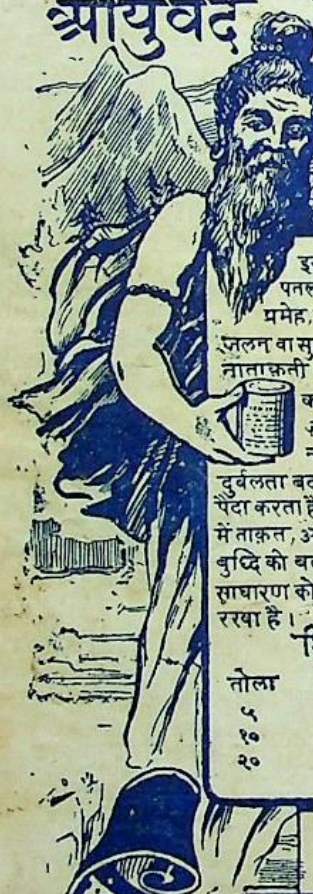 आयुर्वेद
पतल
प्रमेह,
जलन वा सु
नाताक़ती
दुर्बलता बद
पैदा करता है
में ताक़त, अ
बुध्दि को ब
साधारण को
रखा है।
तोला
५
१०
२०